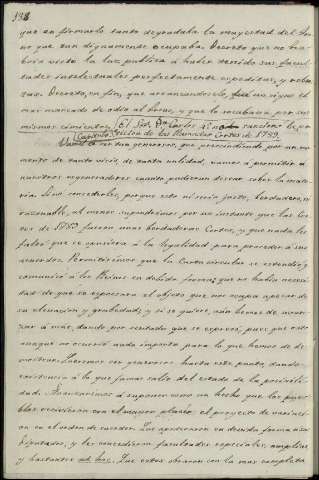 198
que en firmarlo tanto degradaba la magestad del Tro-
no que tan dignamente ocupaba. Decreto que no ha-
bria visto la luz publica á haber tenido sus facul-
tades intelectuales perfectamente espeditas, y robus-
tas. Decreto, en fin, que arrancándosele, fué un signo el
mas marcado de odio al Trono, y que lo socababa por sus
mismos cimientos. El Señor Dn Carlos 4º no sancionó la pe-
Capitulo. Ficcion de las llamadas Cortes de 1789.
Vamos á ser tan generosos, que prescindiendo por un mo-
mento de tanto vicio, de tanta nulidad, vamos á permitir á
nuestros regeneradores cuanto pudieran desear sobre la mate-
ria. Sino concederles, porque esto ni seria justo, verdadero, ni
razonable, al menos supondremos por un instante que las Cor-
tes de 1789 fueron unas verdaderas Cortes, y que nada les
faltó que se quisiera á la legalidad para proceder á sus
acuerdos. Permitiremos que la Carta circular se estendió, y
comunicó á los Reinos en debida forma; que no habia necesi-
dad de que se espresara el objeto que nos ocupa apesar de
su elevacion y gravedad; y si se quiere, aún hemos de avan-
zar á mas, dando por sentado que se espresó, pues que esto
aunque no ocurrió nada importa para lo que hemos de de-
mostrar. Seremos tan generosos hasta este punto, dando
existencia á lo que jamas salió del estado de la posibili-
dad. Avanzaremos á suponer como un hecho que los pue-
blos recibieron con el mayor placer el proyecto de variaci-
on en el orden de suceder. Que aprobaron en devida forma sus
Diputados, y les concedieron facultades especiales, amplias
y bastantes ad hoc. Que estos obraron con la mas completa